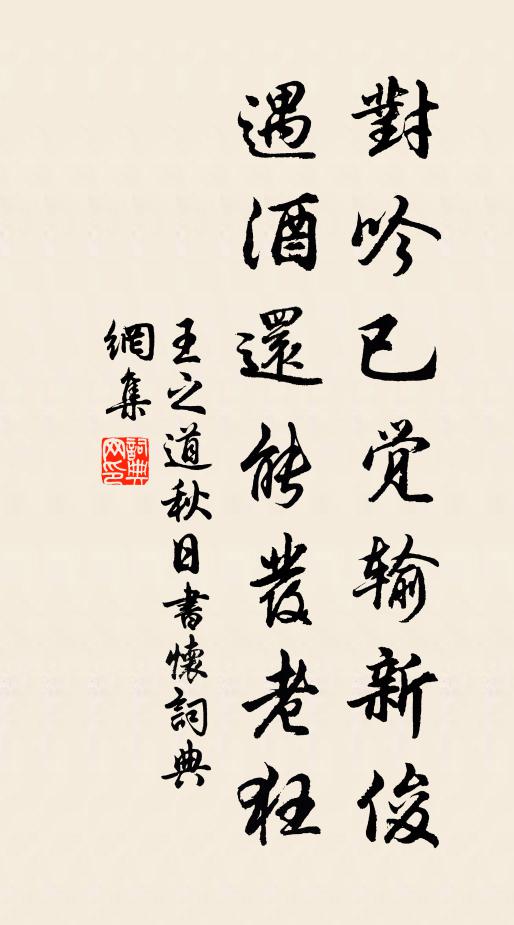 對吟已覺输新俊
遇酒還能發老狂
王之道秋日書懷詞典
網集
詞典网印